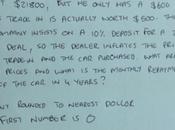 $21800, BUT HE ONLY HAS A $600
TRADE IN IS ACTUALLY WORTH $600. THE
INSISTS ON A 10% DEPOSIT FOR A
DEAL, SO THE DEALER INFLATES THE PRI
TRADE IN AND THE CAR PURCHASED. WHAT AR
PRICES AND WHAT IS THE MONTHLY REPAYM
OF THE CAR IN 4 YEARS?
ROUNDED TO NEAREST DOLLAR
FIRST NUMBER IS 0